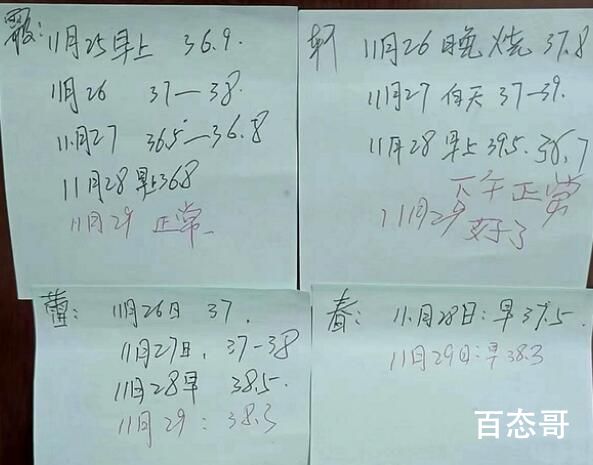 霞：11月25早上 36.9.
11月26 37—38.
11月27 36.5—36.8
11月28早上368
11月29 正常
轩 11月26晚烧37.8
11月27白天37—39.
11月28早上39.5.36.7
下午正常
11月29好了
蕾：11月26日 37.
11月27日.37-38
11月28早 38.5.
11月29：38.3
春：11月28日：早37.5.
11月29日：早38.3
百态哥